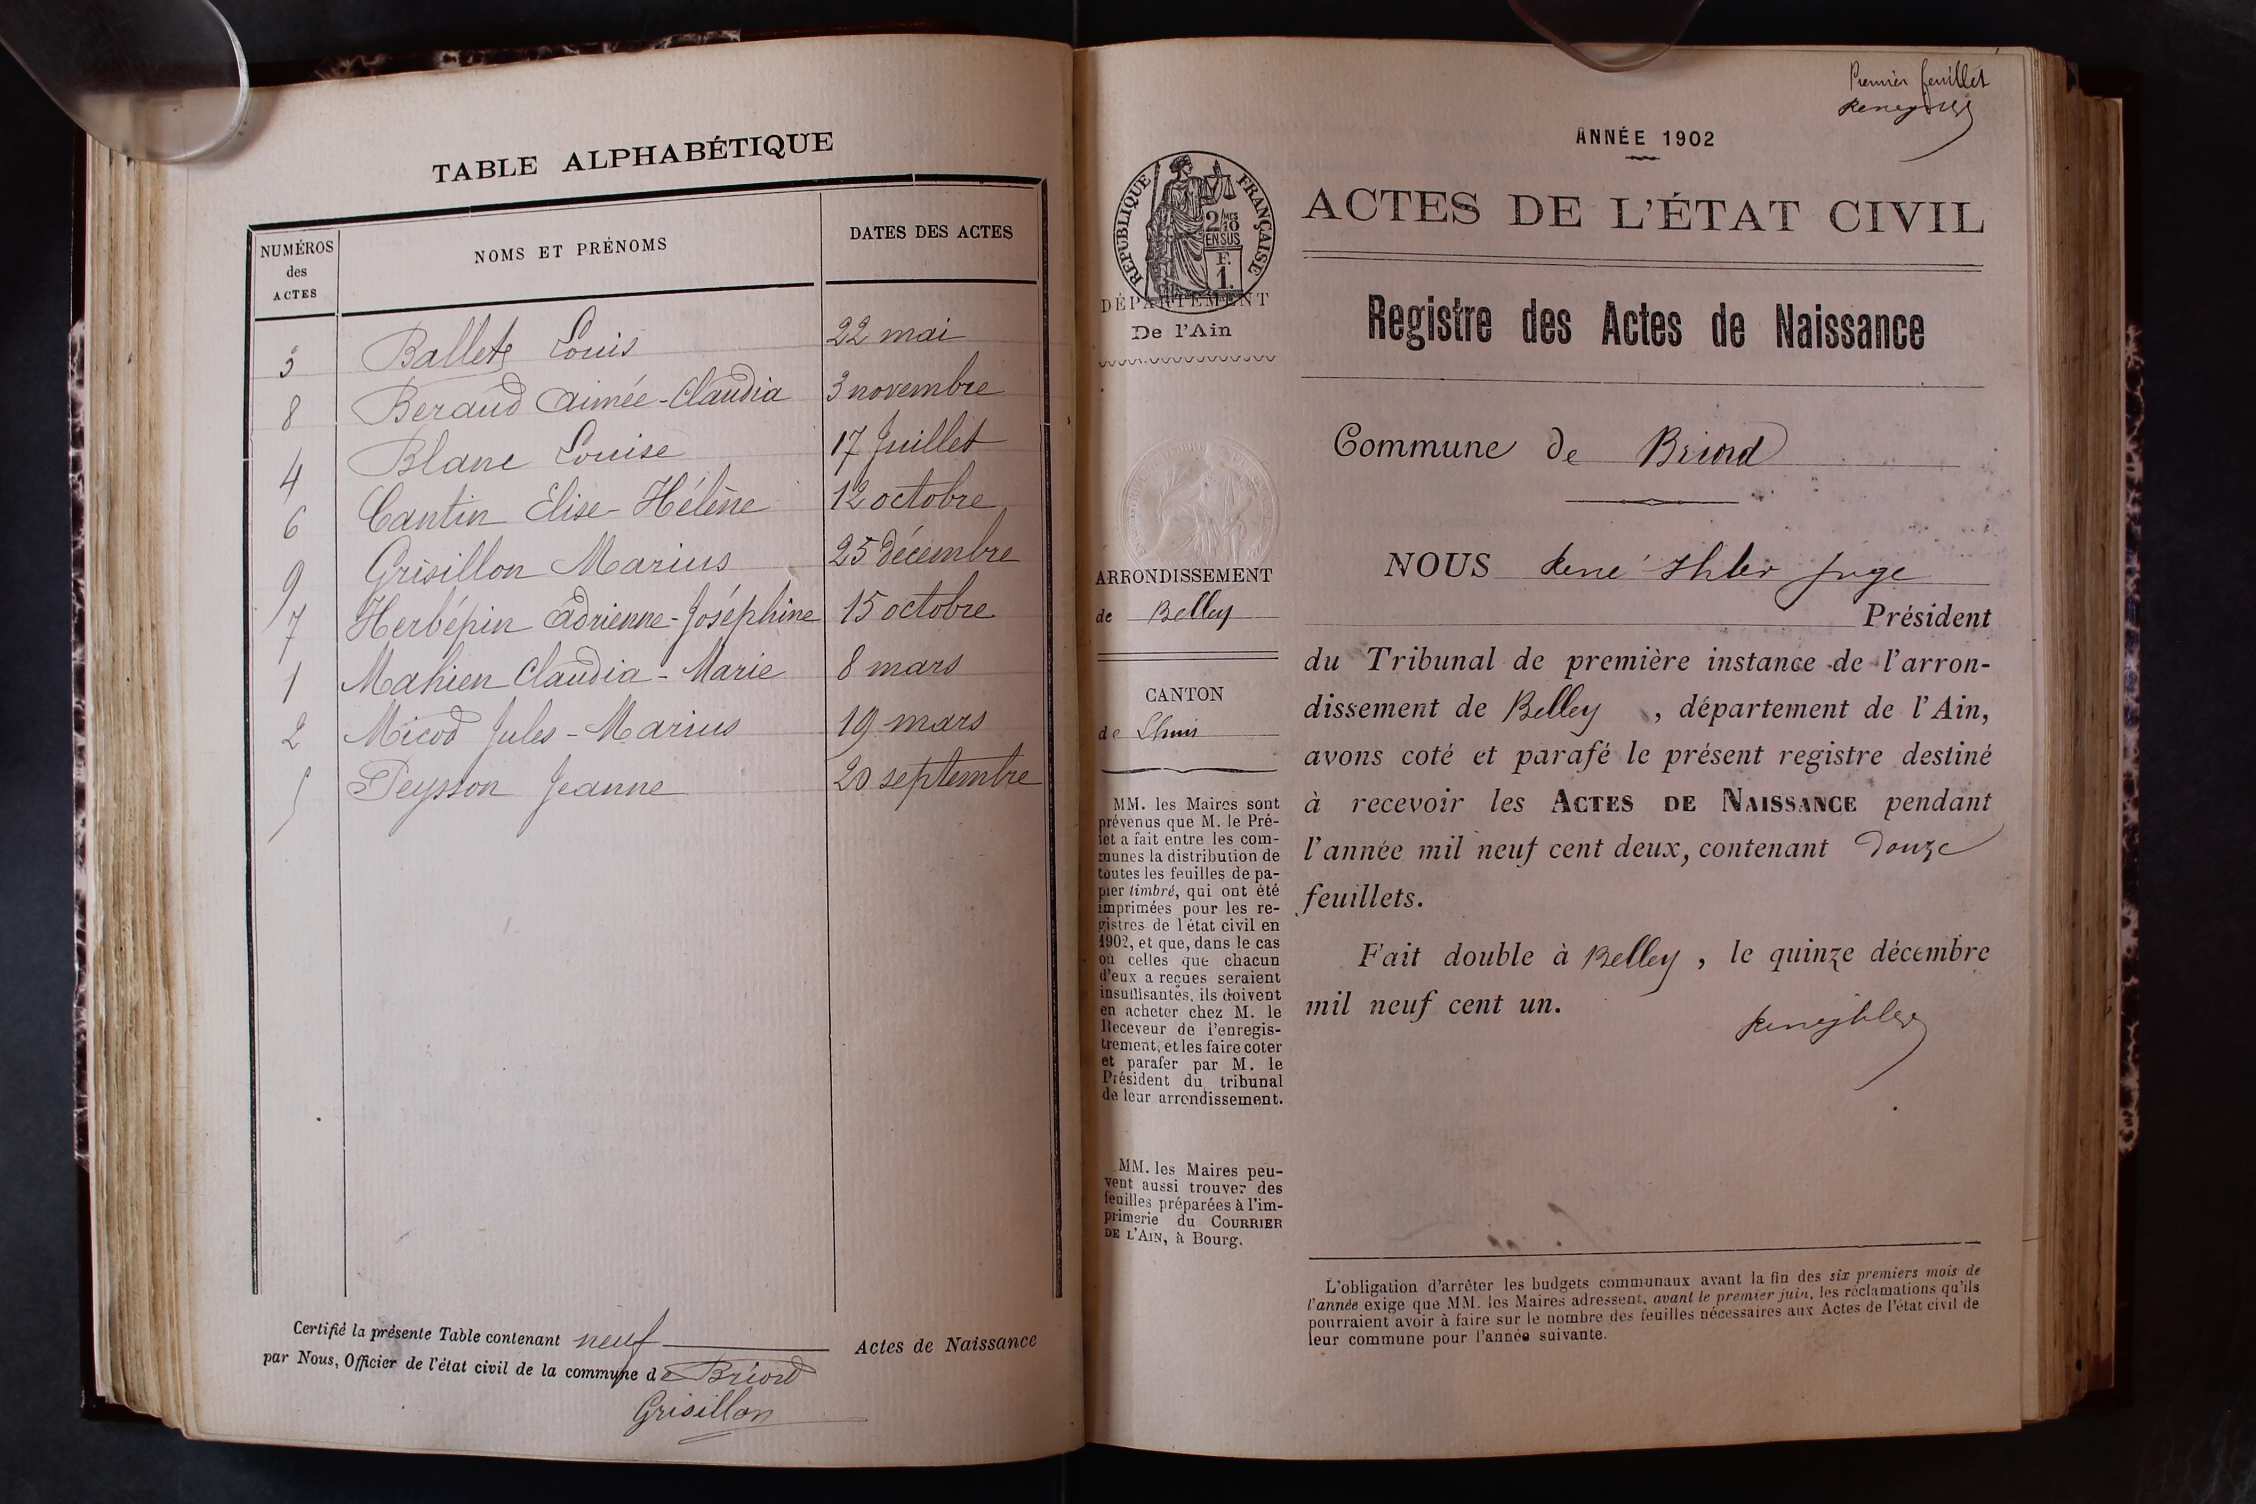 TABLE ALPHABÉTIQUE
NUMÉROS des ACTES
NOMS ET PRÉNOMS
DATES DES ACTES
3 Ballet Louis 22 mai
8 Beraud Aimée-Claudia 3 novembre
4 Blanc Louise 17 Juillet
6 Cantin Elise-Hélène 12 octobre
9 Grisillon Marius 25 décembre
7 Herbépin Adrienne-Joséphine 15 octobre
1 Mahien Claudia-Marie 8 mars
2 Micod Jules-Marius 19 mars
5 Peysson Jeanne 20 septembre
Certifié la présente Table contenant neuf Actes de Naissance
par Nous, Officier de l'état civil de la commune de Briord
Grisillon
Premier feuillet
ANNÉE 1902
RÉPUBLIQUE FRANÇAISE
2/10 MES
EN SUS
F.
1.
DÉPARTEMENT
De l'Ain
ARRONDISSEMENT
de Belley
CANTON
de Lhuis
MM. les Maires sont
prévenus que M. le Pré-
fet a fait entre les com-
munes la distribution de
toutes les feuilles de pa-
pier timbré, qui ont été
imprimées pour les re-
gistres de l'état civil en
1902, et que, dans le cas
où celles que chacun
d'eux a reçues seraient
insuffisantes, ils doivent
en acheter chez M. le
Receveur de l'enregis-
trement, et les faire coter
et parafer par M. le
Président du tribunal
de leur arrondissement.
MM. les Maires peu-
vent aussi trouver des
feuilles préparées à l'im-
primerie du COURRIER
DE L'AIN, à Bourg.
ACTES DE L'ÉTAT CIVIL
Registre des Actes de Naissance
Commune de Briord
NOUS René Ihler Juge
Président
du Tribunal de première instance de l'arron-
dissement de Belley, département de l'Ain,
avons coté et parafé le présent registre destiné
à recevoir les ACTES DE NAISSANCE pendant
l'année mil neuf cent deux, contenant douze
feuillets.
Fait double à Belley, le quinze décembre
mil neuf cent un.
L'obligation d'arrêter les budgets communaux avant la fin des six premiers mois de
l'année exige que MM. les Maires adressent, avant le premier juin, les réclamations qu'ils
pourraient avoir à faire sur le nombre des feuilles nécessaires aux Actes de l'état civil de
leur commune pour l'année suivante.